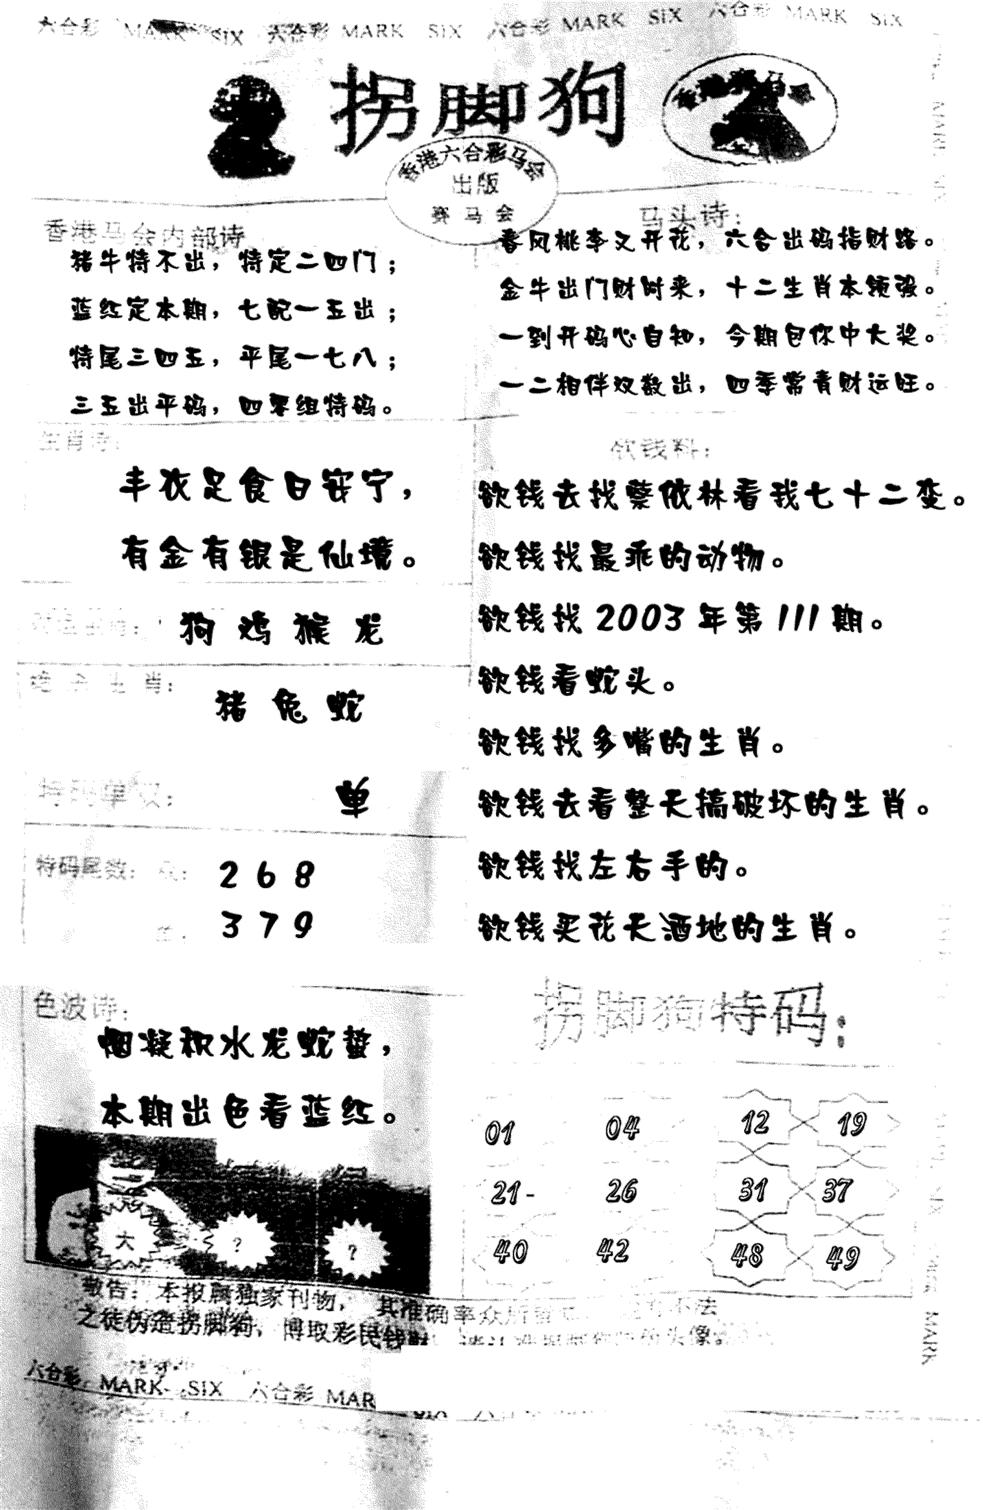 六合彩 MARK SIX 六合彩 MARK SIX 六合彩 MARK SIX 六合彩 MARK SIX
拐脚狗
香港赛马会
香港六合彩马会
出版
赛马会
香港马会内部诗
猪牛特不出，特定二四门；
蓝红定本期，七配一五出；
特尾三四五，平尾一七八；
三五出平码，四零组特码。
马头诗：
春风桃李又开花，六合出码指财路。
金牛出门财时来，十二生肖本领强。
一到开码心自知，今期包你中大奖。
一二相伴双数出，四季常青财运旺。
生肖诗：
丰衣足食日安宁，
有金有银是仙境。
狗鸡猴龙
绝杀生肖：
猪兔蛇
特码单双：
单
特码尾数：
268
379
欲钱料：
欲钱去找蔡依林看我七十二变。
欲钱找最乖的动物。
欲钱找2003年第111期。
欲钱看蛇头。
欲钱找多嘴的生肖。
欲钱去看整天搞破坏的生肖。
欲钱找左右手的。
欲钱买花天酒地的生肖。
色波诗：
烟凝积水龙蛇蛰，
本期出色看蓝红。
大 ? ?
拐脚狗特码：
01 04 12 19
21- 26 31 37
40 42 48 49
敬告：本报属独家刊物，其准确率众所 不法
之徒伪造拐脚狗，博取彩民钱财 的头像
六合彩 MARK SIX 六合彩 MAR
MARK